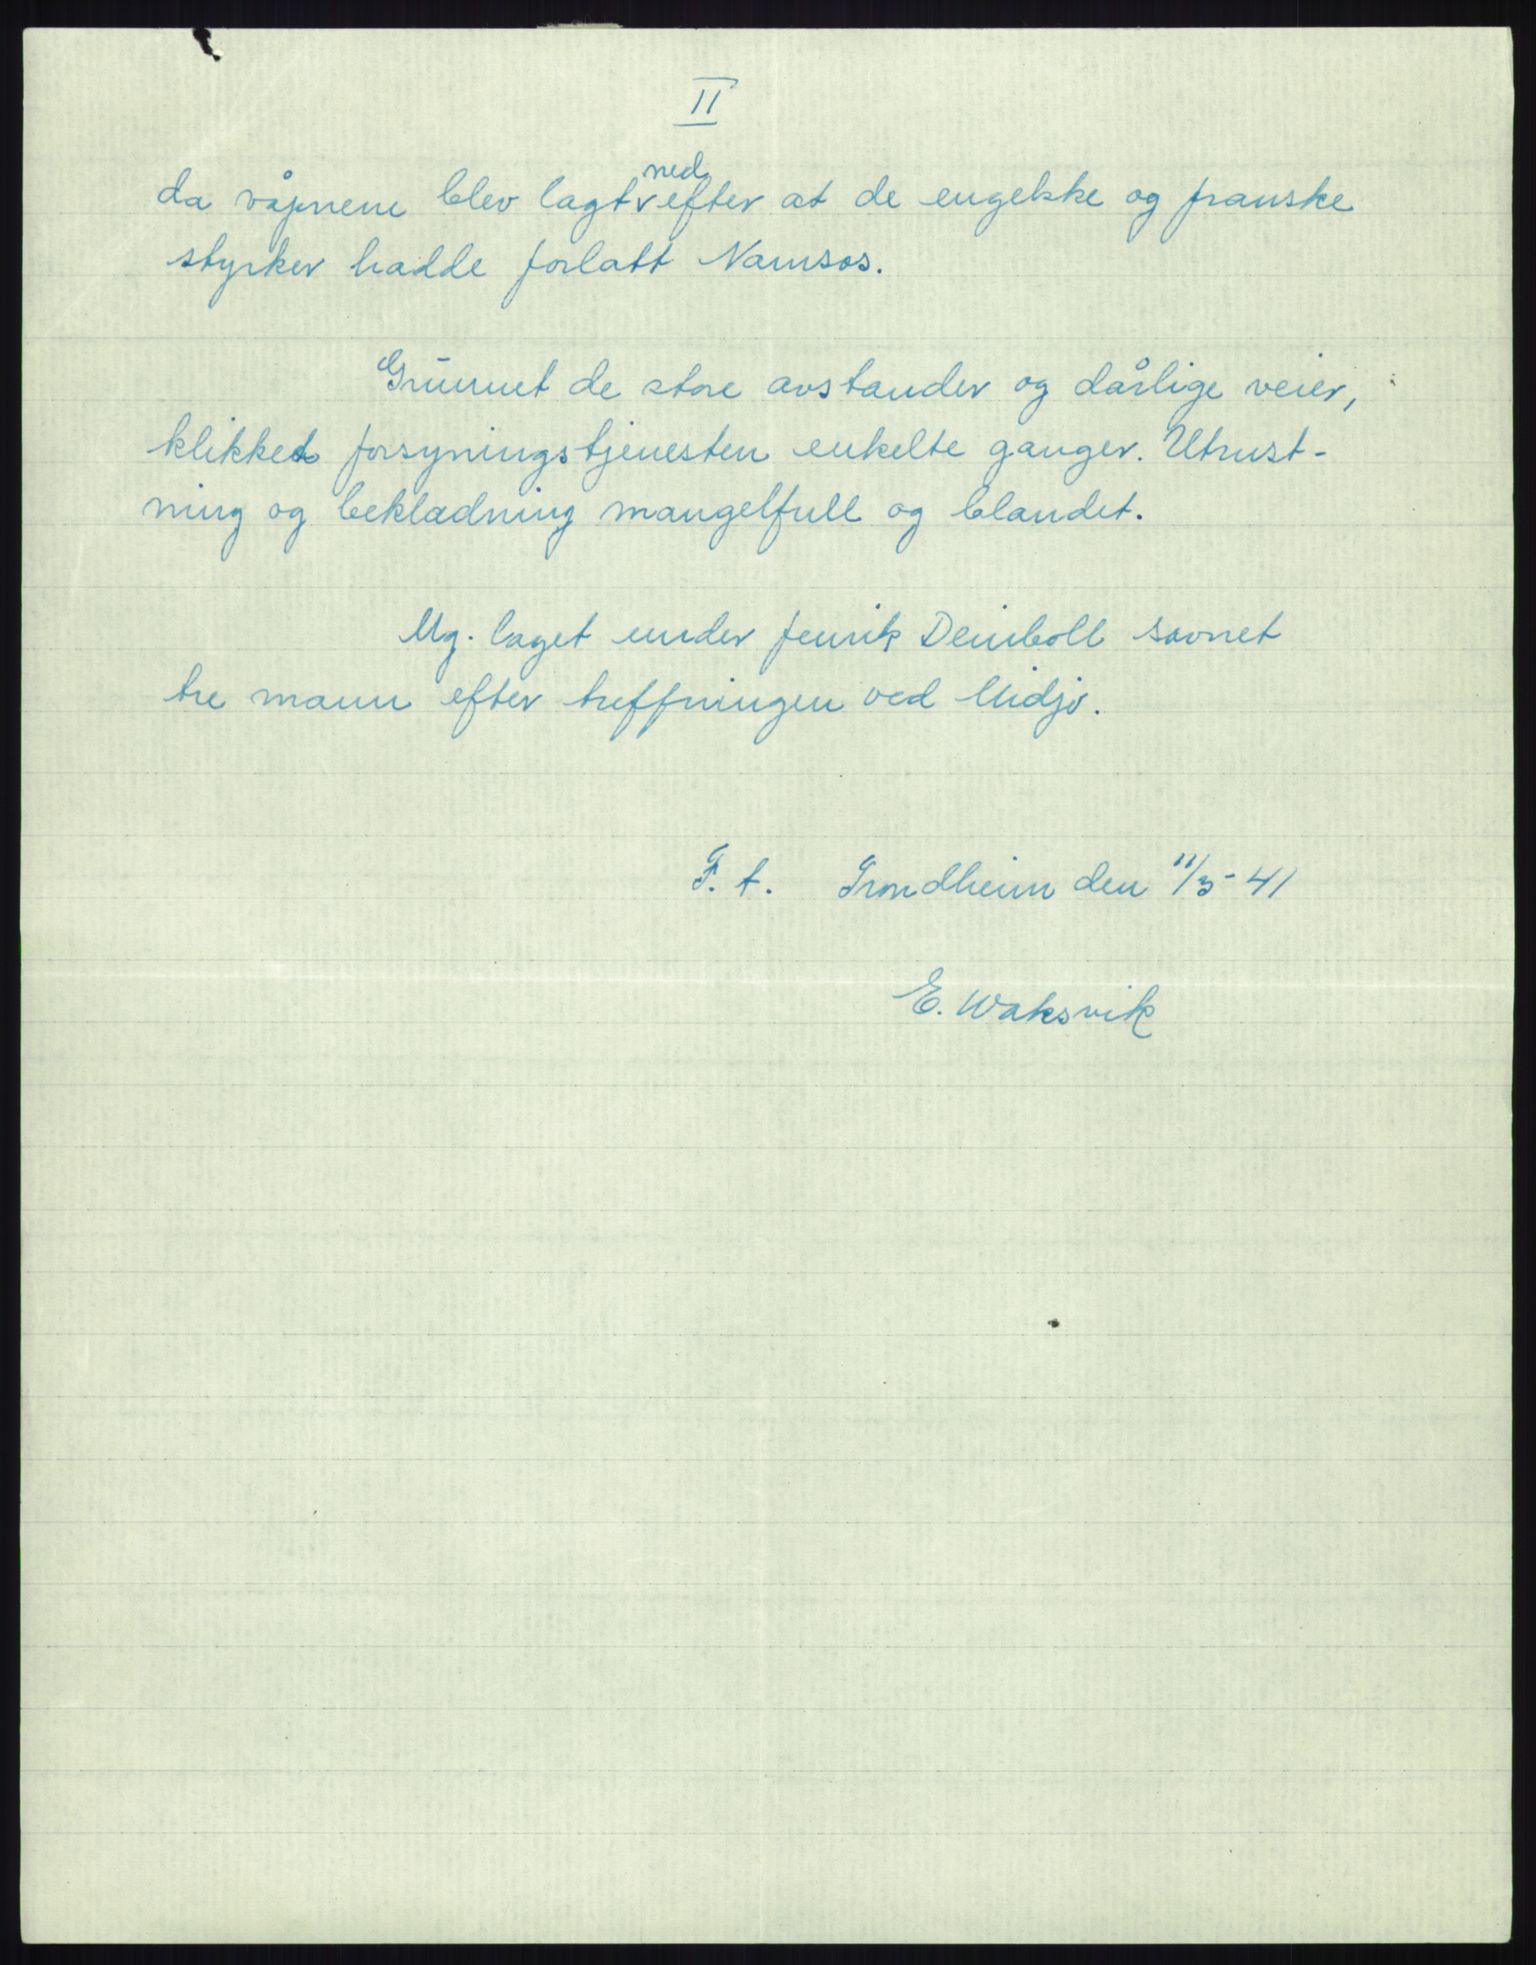 II
da våpnene blev lagt ned efter at de engelske og franske
styrker hadde forlatt Namsos.
Grunnet de store avstander og dårlige veier,
klikket forsyningstjenesten enkelte ganger. Utrust-
ning og bekladning mangelfull og blandet.
Mg. laget under fenrik Deinboll savnet
tre mann efter treffningen ved Midjo.
F. t. Trondheim den 11/3-41
E. Waksvik